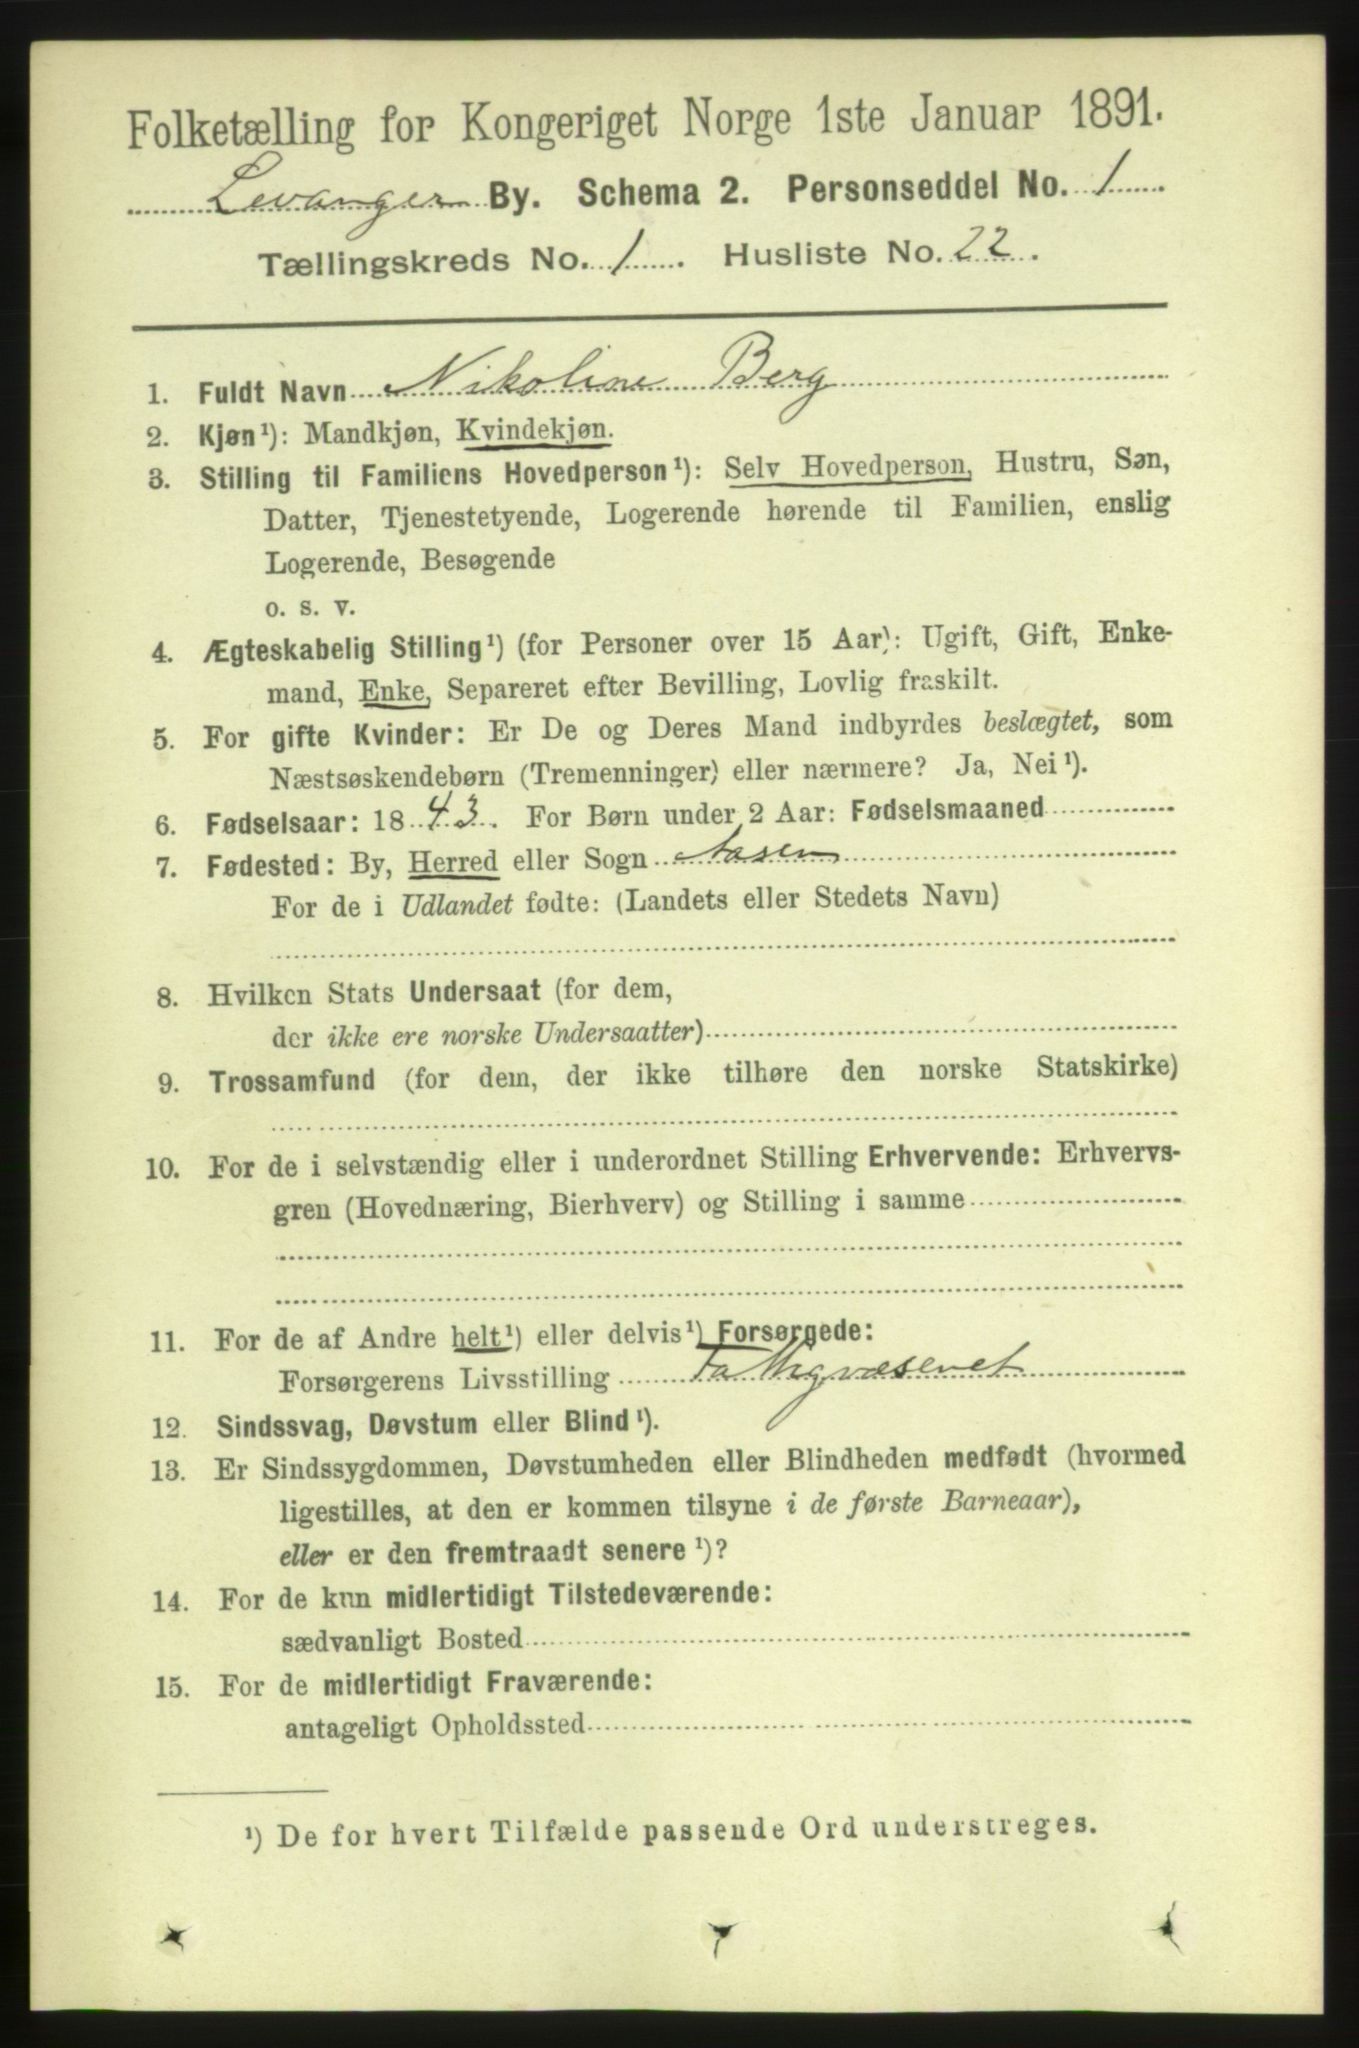 Folketælling for Kongeriget Norge 1ste Januar 1891.
Levanger By. Schema 2. Personseddel No. 1
Tællingskreds No. 1. Husliste No. 22.
1. Fuldt Navn Nikoline Berg
2. Kjøn¹): Mandkjøn, Kvindekjøn.
3. Stilling til Familiens Hovedperson¹): Selv Hovedperson, Hustru, Søn,
Datter, Tjenestetyende, Logerende hørende til Familien, enslig
Logerende, Besøgende
o. s. v.
4. Ægteskabelig Stilling¹) (for Personer over 15 Aar): Ugift, Gift, Enke-
mand, Enke, Separeret efter Bevilling, Lovlig fraskilt.
5. For gifte Kvinder: Er De og Deres Mand indbyrdes beslægtet, som
Næstsøskendebørn (Tremenninger) eller nærmere? Ja, Nei¹).
6. Fødselsaar: 1843. For Børn under 2 Aar: Fødselsmaaned
7. Fødested: By, Herred eller Sogn Aasen
For de i Udlandet fødte: (Landets eller Stedets Navn)
8. Hvilken Stats Undersaat (for dem,
der ikke ere norske Undersaatter)
9. Trossamfund (for dem, der ikke tilhøre den norske Statskirke)
10. For de i selvstændig eller i underordnet Stilling Erhvervende: Erhvervs-
gren (Hovednæring, Bierhverv) og Stilling i samme
11. For de af Andre helt¹) eller delvis¹) Forsørgede:
Forsørgerens Livsstilling Fattigvæsenet
12. Sindssvag, Døvstum eller Blind¹).
13. Er Sindssygdommen, Døvstumheden eller Blindheden medfødt (hvormed
ligestilles, at den er kommen tilsyne i de første Barneaar),
eller er den fremtraadt senere¹)?
14. For de kun midlertidigt Tilstedeværende:
sædvanligt Bosted
15. For de midlertidigt Fraværende:
antageligt Opholdssted
¹) De for hvert Tilfælde passende Ord understreges.